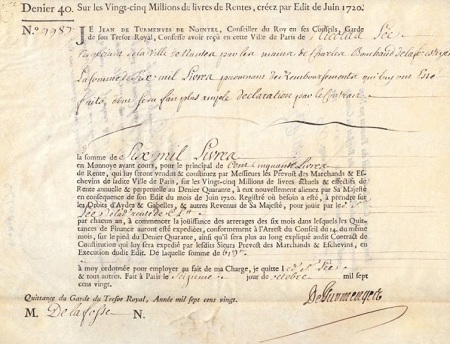 Denier 40. Sur les Vingt-cinq Millions de livres de Rentes, créez par Edit de Juin 1720.
N.° 9987
JE JEAN DE TURMENYES DE NOINTEL, Conseiller du Roy en ses Conseils, Garde
de son Tresor Royal, Confesse avoir reçû en cette Ville de Paris de
de la Ville de par les mains de Charles
La somme de Six mil Livres provenans des Remboursements qui luy ont Esté
faits, declaration par le
la somme de Six mil Livres
en Monnoye ayant cours, pour le principal de Cent cinquante Livres
de Rente, qui luy seront vendus & constituez par Messieurs les Prevost des Marchands & Es-
chevins de ladite Ville de Paris, sur les Vingt-cinq Millions de livres actuels & effectifs de
Rente annuelle & perpetuelle au Denier Quarante, à eux nouvellement alienez par Sa Majesté
en consequence de son Edit du mois de Juin 1720. Registré où besoin a esté, à prendre sur
les Droits d'Aydes & Gabelles, & autres Revenus de Sa Majesté, pour jouir par le
par chacun an, à commencer la joüissance des arrerages des six mois dans lesquels les Quittan-
ces de Finance auront esté expediées, conformément à l'Arrest du Conseil du 14. du même
mois, sur le pied du Denier Quarante, ainsi qu'il sera plus au long expliqué audit Contract de
Constitution qui luy sera expedié par lesdits Sieurs Prevost des Marchands & Eschevins, en
Execution dudit Edit. De laquelle somme de
à moy ordonnée pour employer au fait de ma Charge, je quitte
& tous autres. Fait à Paris le jour de octobre mil sept
cens vingt.
Quittance du Garde du Tresor Royal, Année mil sept cens vingt.
M. Delafosse N.